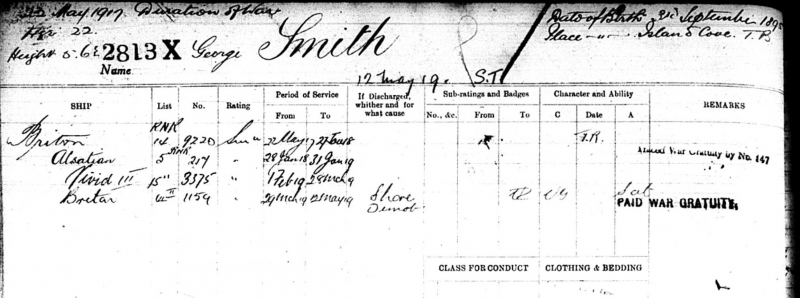 22 May 1917 Duration of War
Age 22
Height 5.6½ 2813X George Smith
Date of Birth 21st September 189
Place " Island Cove. T.B
Name
12 May 19. S.T
SHIP List No. Rating Period of Service If Discharged, whither and for what cause Sub-ratings and Badges Character and Ability REMARKS
From To No., &c. From To C Date A
RNR
Briton 14 9220 Smn 22 May 17 27 Jan 18 T.R.
Alsatian 5 RNR 217 " 28 Jan 18 31 Jan 19 War Gratuity by No. 147
Vivid III 15 3375 " 1 Feb 19 28 Mch 19
Briton 1159 " 29 Mch 19 12 May 19 Shore Demob VG Sat
PAID WAR GRATUITY.
CLASS FOR CONDUCT CLOTHING & BEDDING